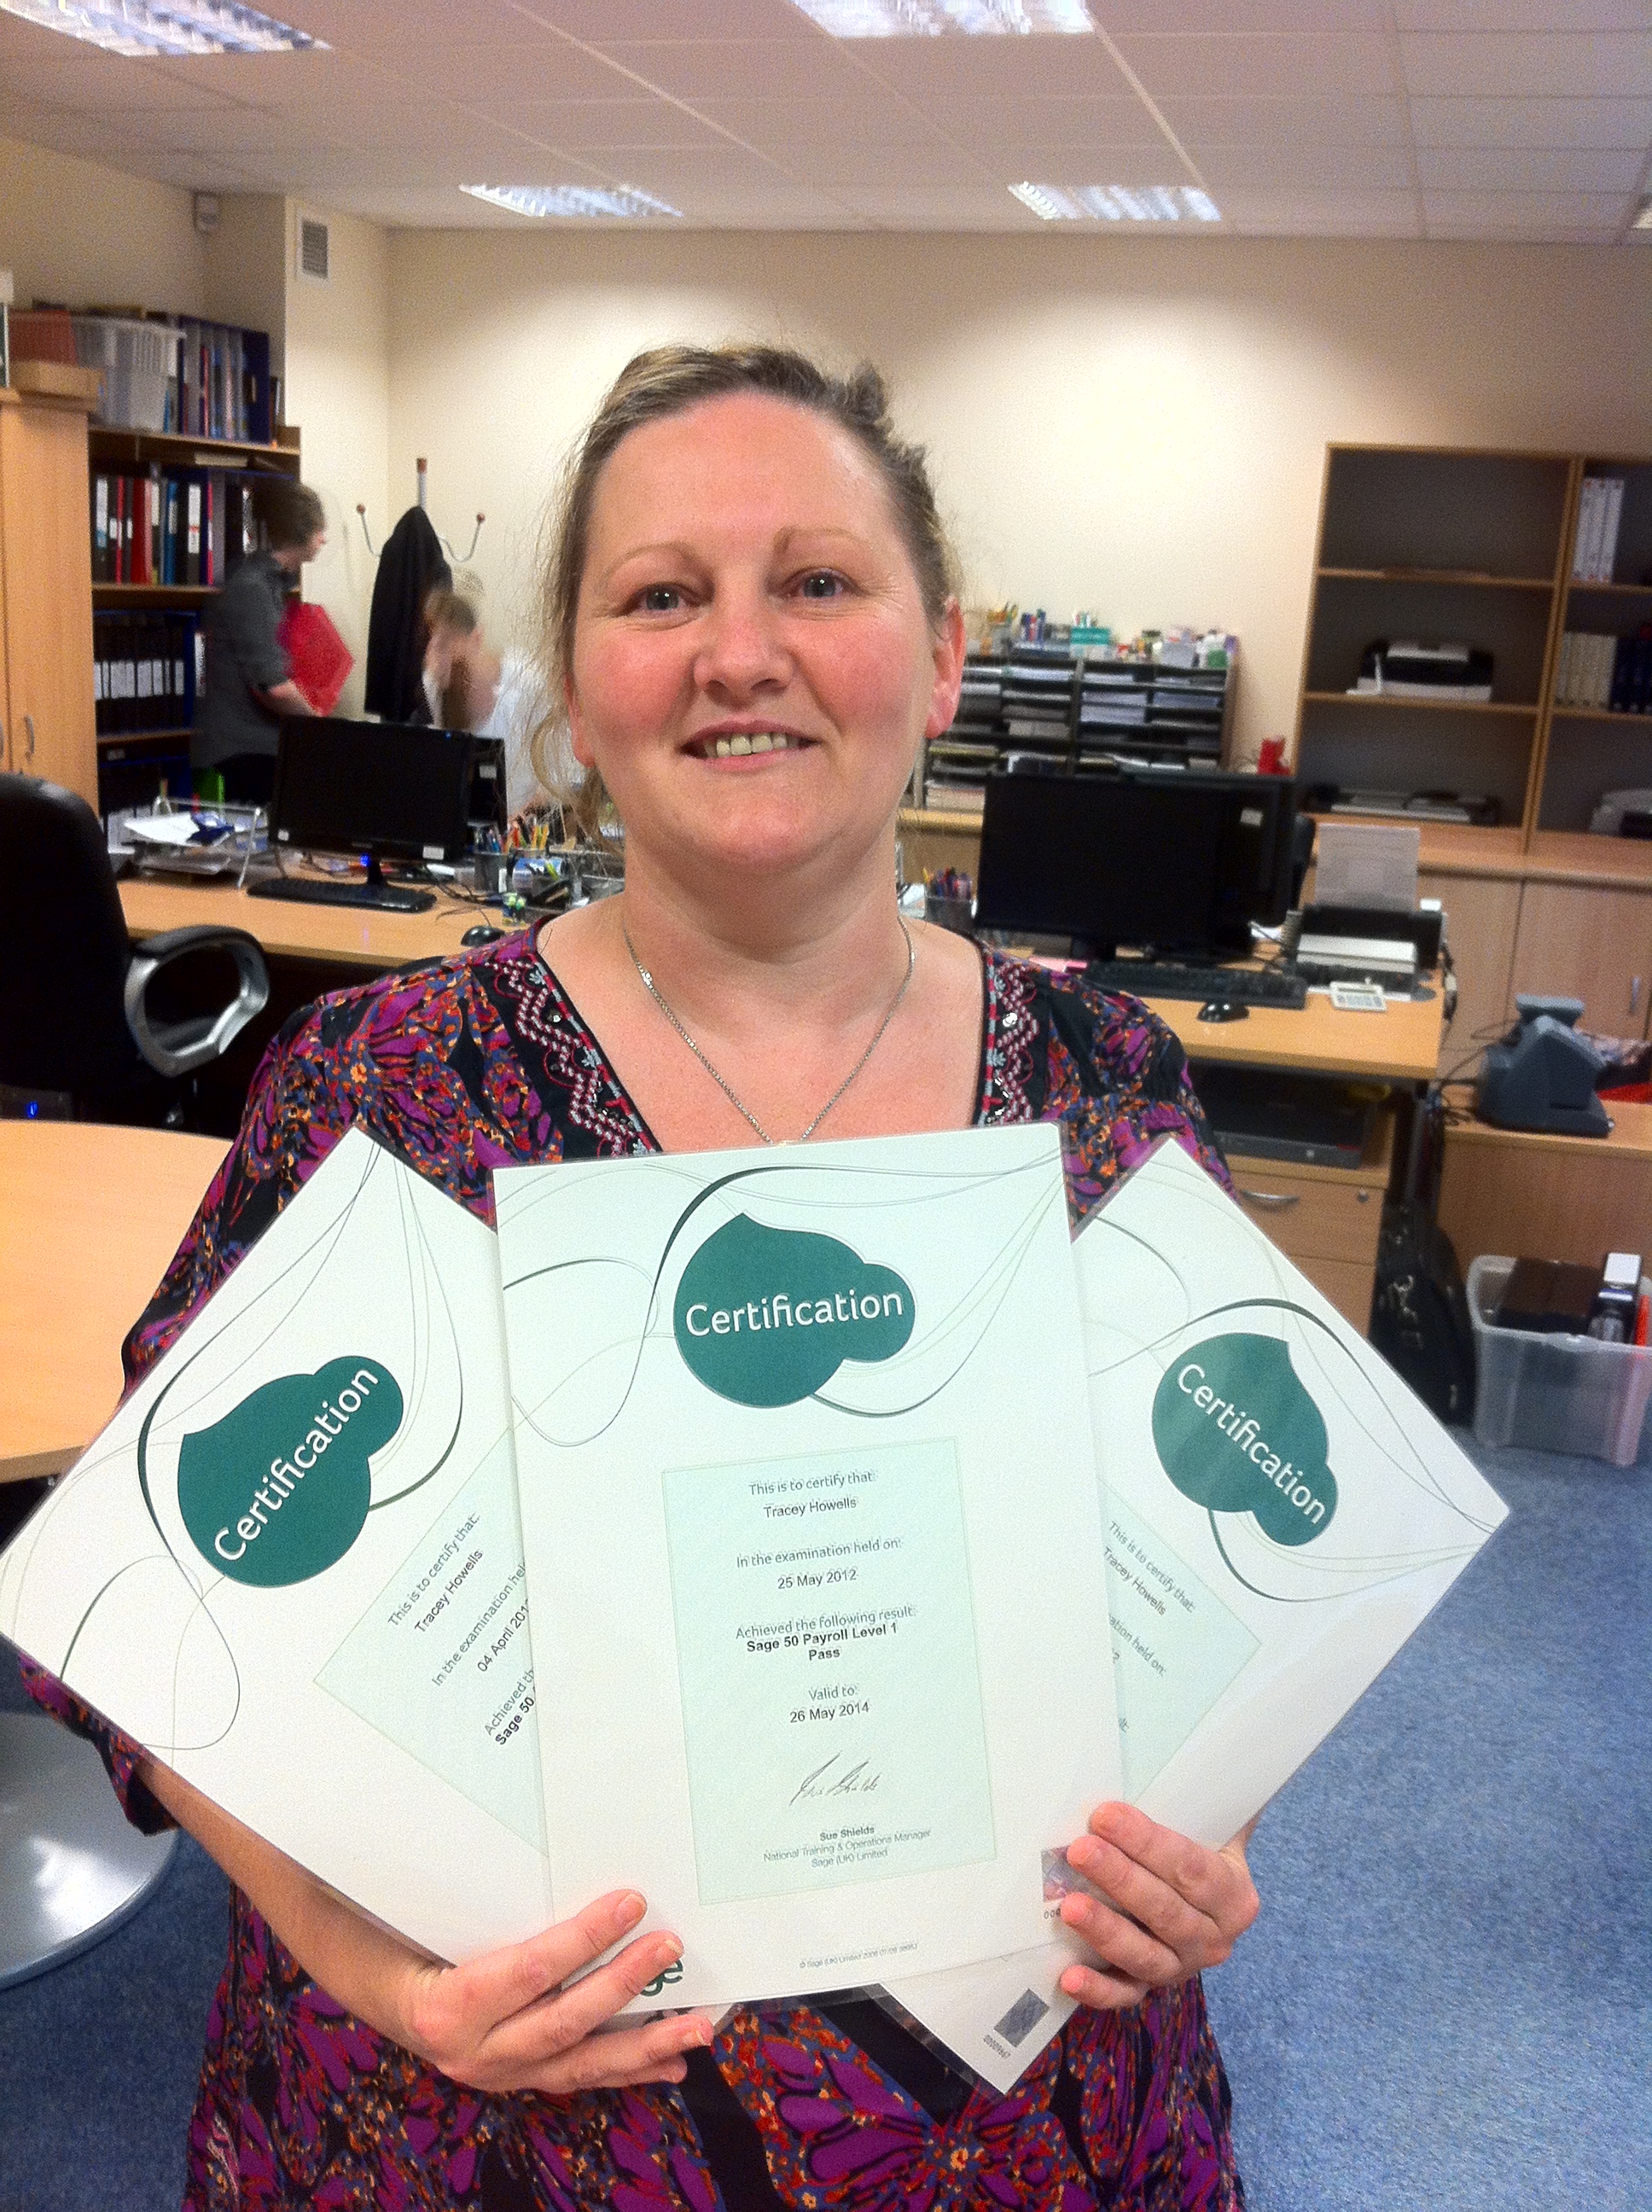 Certification
This is to certify that:
Tracey Howells
In the examination
04 April
Achieved
Sage 50
Certification
This is to certify that:
Tracey Howells
In the examination held on:
25 May 2012
Achieved the following result:
Sage 50 Payroll Level 1
Pass
Valid to:
26 May 2014
Sue Shields
Sue Shields
National Training & Operations Manager
Sage (UK) Limited
Certification
This is to certify that:
Tracey Howells
held on: